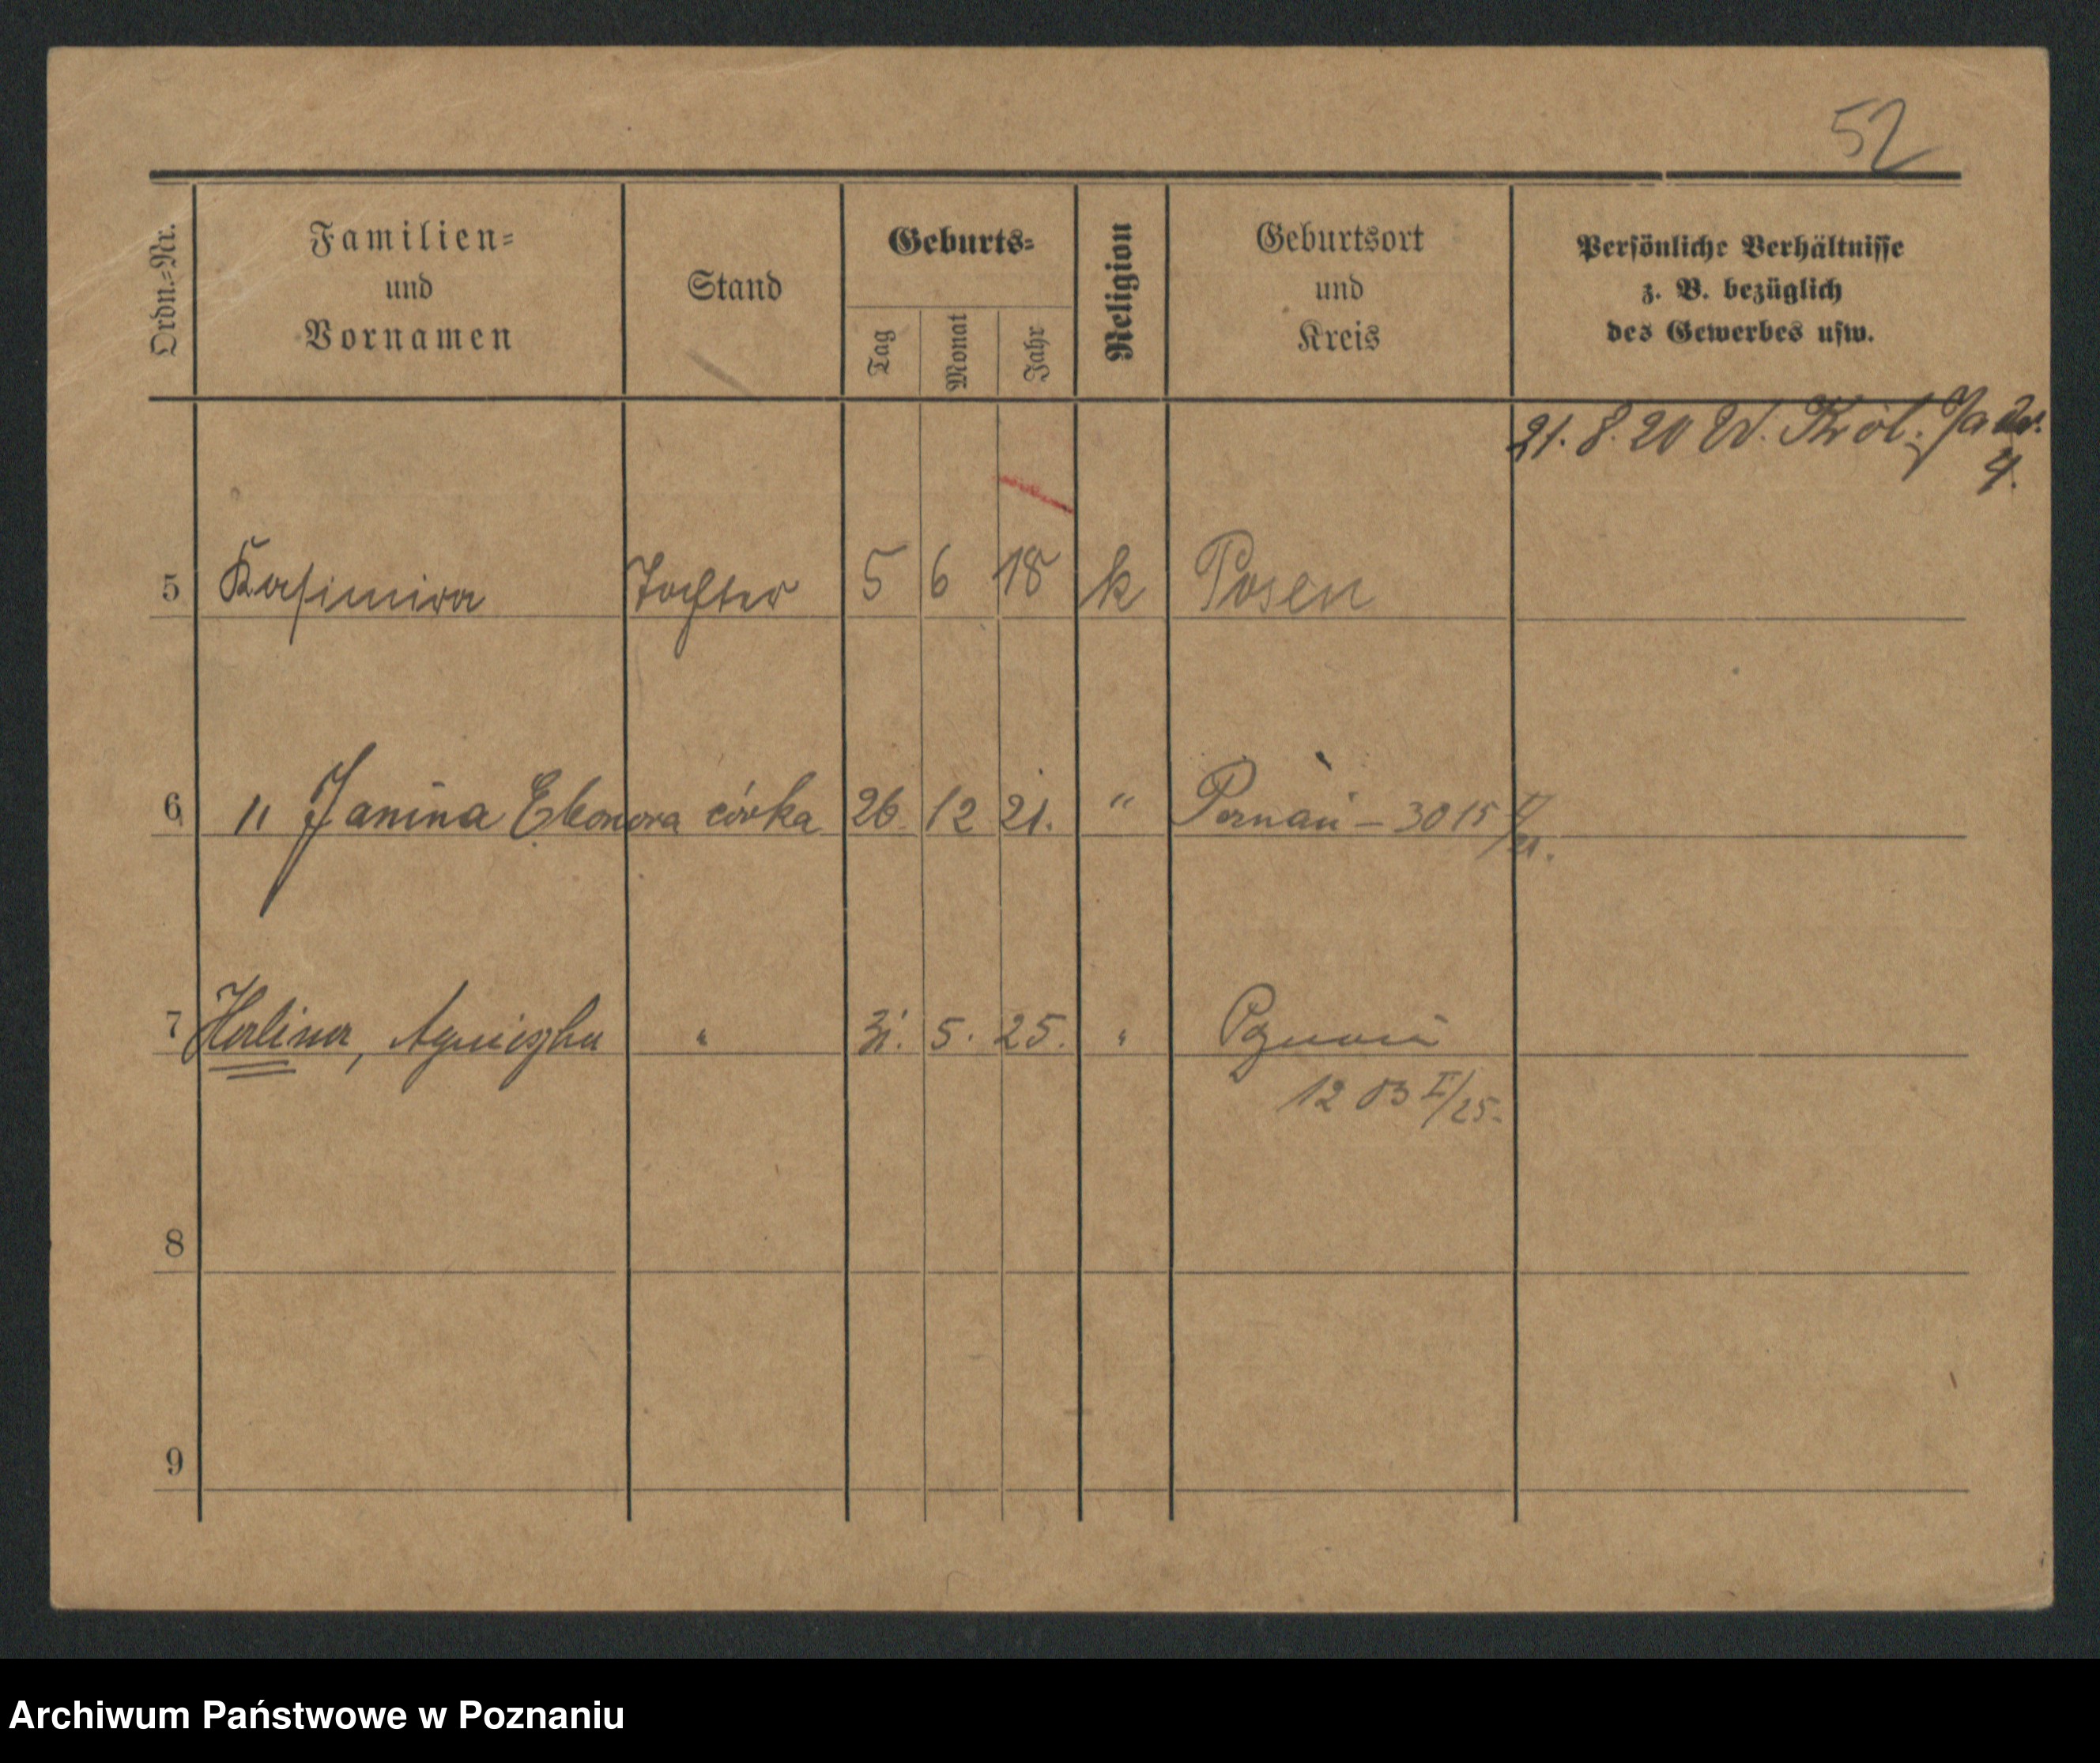 52
Ordn.-Nr. Familien- und Vornamen Stand Geburts- Tag Monat Jahr Religion Geburtsort und Kreis Persönliche Verhältnisse z. B. bezüglich des Gewerbes usw.
21. 8. 20 W. Król. Jadw. 4.
5 Kasimira Tochter 5 6 18 k Posen
6 " Janina Eleonora córka 26 12 21. " Poznań – 3015
7 Halina, Agnieszka " 31. 5. 25. " Poznań
1203 I/25.
8
9
Archiwum Państwowe w Poznaniu